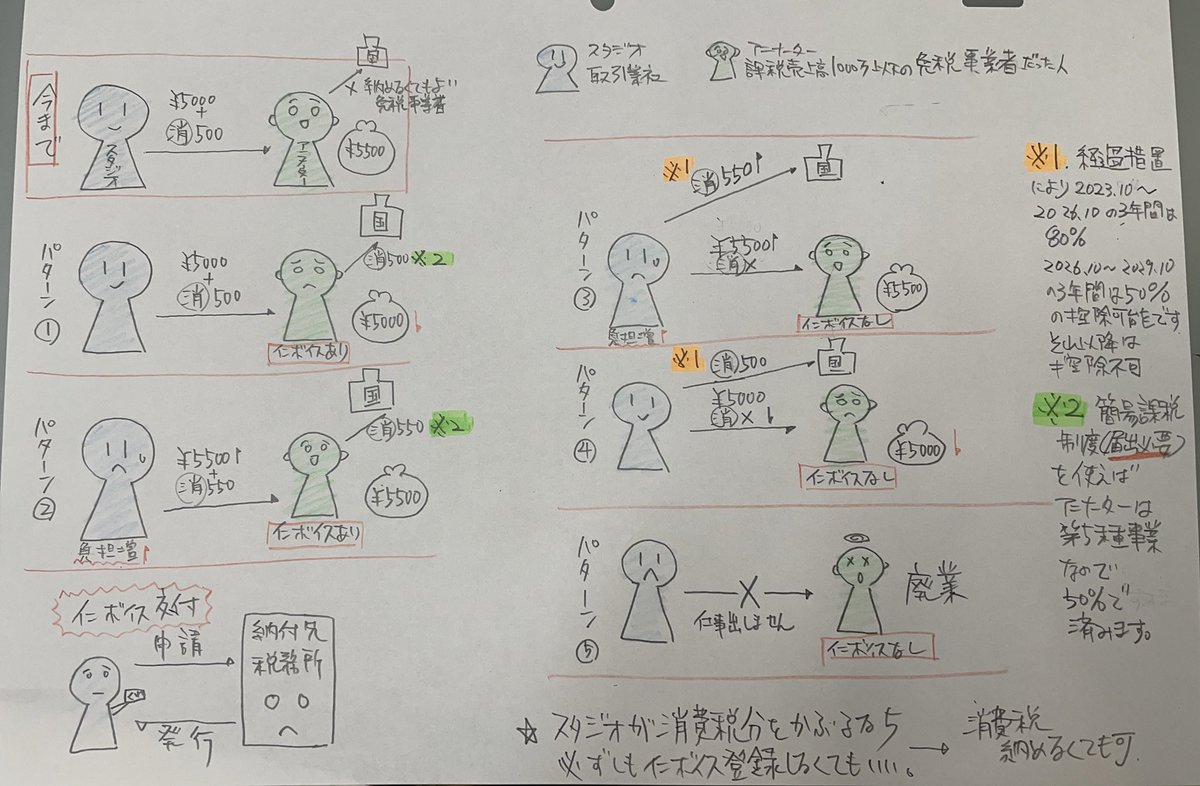 スタジオ
取引業社
アニメーター
課税売上高1000万以下の免税事業者だった人
今まで
スタジオ
¥5000
+
消500
アニメーター
国
× 納めなくてもよい
免税事業者
¥5500
パターン①
¥5000
+
消500
国
消500 ※2
¥5000
インボイスあり
パターン②
負担増
¥5500
+
消550
国
消550 ※2
¥5500
インボイスあり
インボイス交付
申請
発行
納付先
税務所
パターン③
※1
消550
国
¥5500
消×
負担増
¥5500
インボイスなし
パターン④
※1
消500
国
¥5000
消×
¥5000
インボイスなし
パターン⑤
×
仕事出しません
廃業
インボイスなし
※1. 経過措置
により2023.10〜
2026.10の3年間は
80%
2026.10〜2029.10
の3年間は50%
の控除可能です
それ以降は
控除不可
※2 簡易課税
制度(届出必要)
を使えば
アニメーターは
第5種事業
なので
50%で
済みます。
☆ スタジオが消費税分をかぶるなら
必ずしもインボイス登録しなくてもいい。
→ 消費税
納めなくても可.